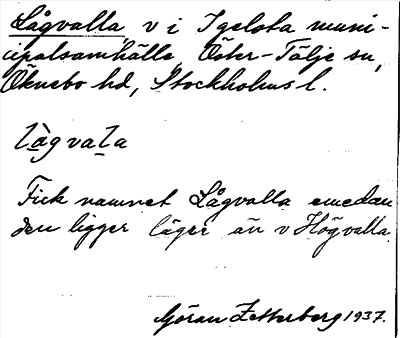 Lågvalla, v i Igelsta muni-
cipalsamhälle, Öster-Tälje sn,
Öknebo hd, Stockholms l.
lågvala
Fick namnet Lågvalla emedan
den ligger läger än v Högvalla.
Göran Zetterberg 1937.